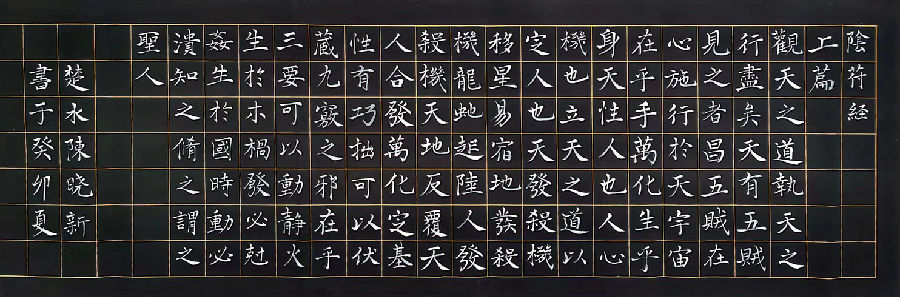 陰符経
上篇
觀天之道執天之
行盡矣天有五賊
見之者昌五賊在
心施行於天宇宙
在乎手萬化生乎
身天性人也人心
機也立天之道以
定人也天發殺機
移星易宿地發殺
機龍虵起陸人發
殺機天地反覆天
人合發萬化定基
性有巧拙可以伏
藏九竅之邪在乎
三要可以動靜火
生於木禍發必尅
姦生於國時動必
潰知之脩之謂之
聖人
楚水陳晓新
書于癸卯夏